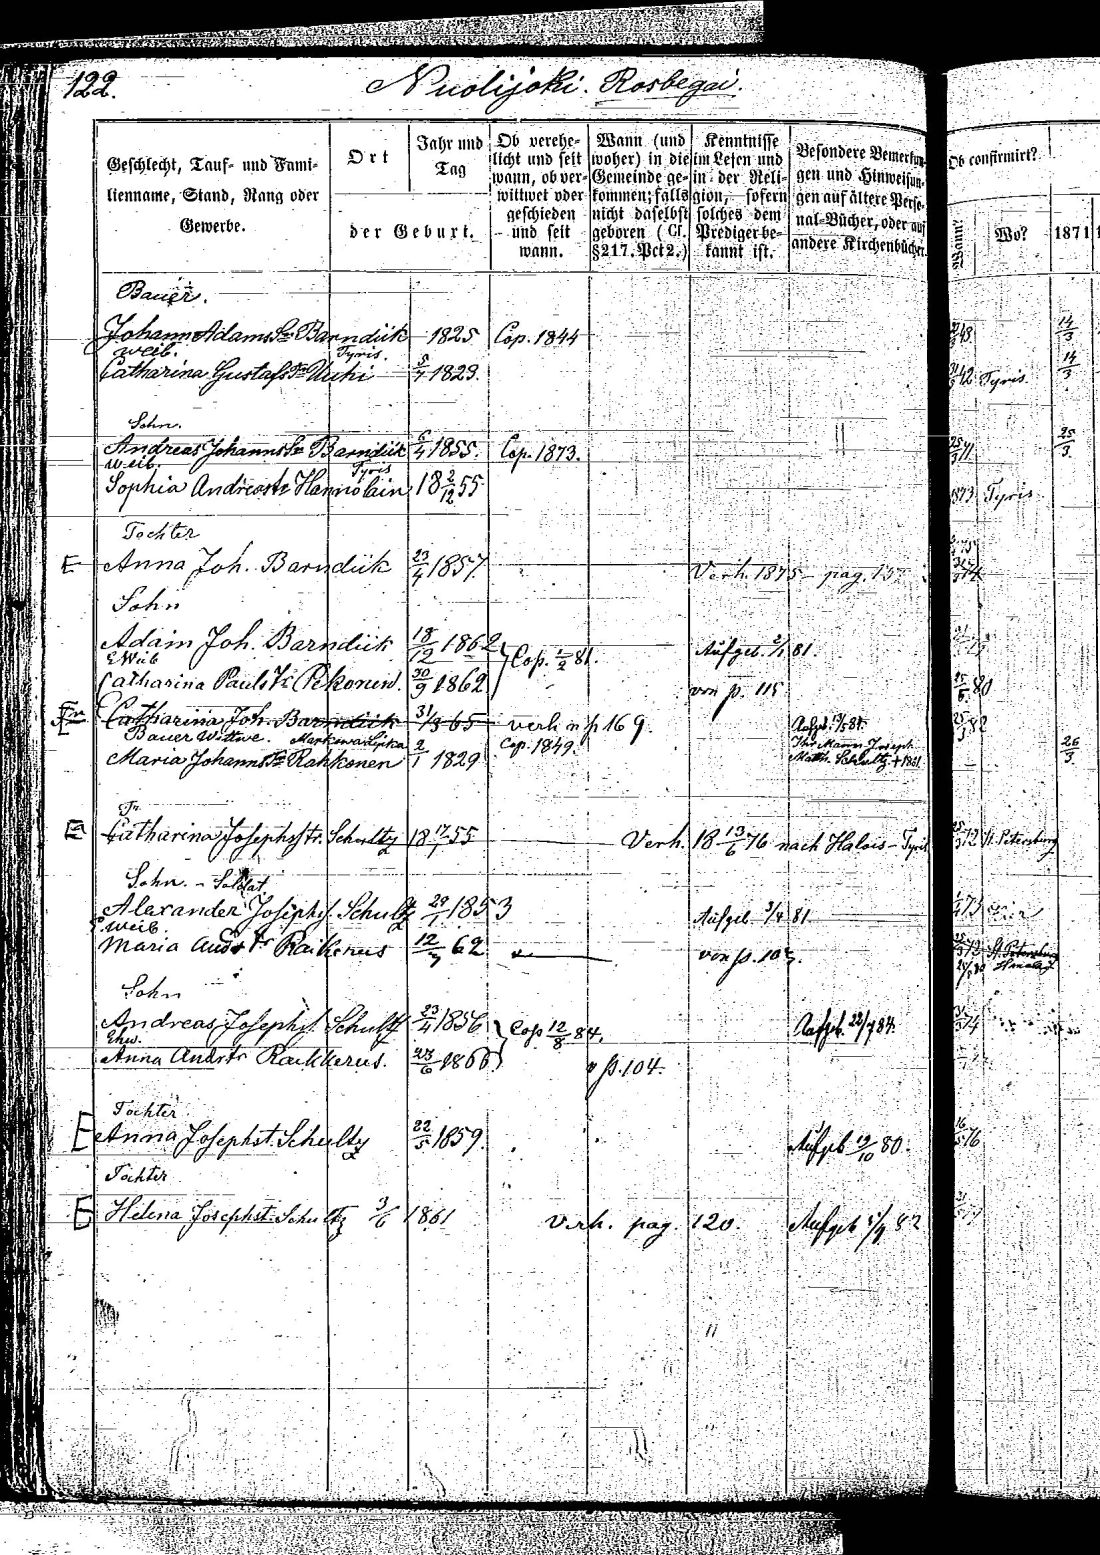 122.
Nuolijoki. Rosbegai.
Geschlecht, Tauf- und Fami-
lienname, Stand, Rang oder
Gewerbe.
Ort
der Geburt.
Jahr und
Tag
Ob verehe-
licht und seit
wann, ob ver-
wittwet oder
geschieden
und seit
wann.
Wann (und
woher) in die
Gemeinde ge-
kommen; falls
nicht daselbst
geboren (Cf.
§217. Pct 2.)
Kenntnisse
im Lesen und
in der Reli-
gion, sofern
solches dem
Prediger be-
kannt ist.
Besondere Bemerkun-
gen und Hinweisun-
gen auf ältere Perso-
nal-Bücher, oder auf
andere Kirchenbücher.
Ob confirmirt?
Wann?
Wo?
1871
Bauer.
Johann Adams Sn Barndük 1825 Cop. 1844 14/3
weib. Tyris.
Catharina Gustafs Tr Uuhi 5/7 1823. 42 Tyris 14/3
Sohn.
Andreas Johanns Sn Barndük 6/4 1855. Cop. 1873. 25/3
weib. Tyris
Sophia Andreastr Hannolain 18 2/12 55 1873 Tyris
Tochter
E Anna Joh. Barndük 23/4 1857. Verh. 1875 - pag.
Sohn
Adam Joh. Barndük 18/12 1862 Cop. 1/2 81. Aufgeb. 2/1 81.
E. Weib
Catharina Pauls Tr Pekonen. 30/9 1862 von p. 115 80
Catharina Joh. Barndük 31/3 65 verh n p 169. 82
Bauer Wittwe. Markowa Lipka Cop. 1849. Ihr Mann Joseph
Maria Johanns Tr Rahkonen 2/1 1829 Matth. Schultz + 1861 26/3
Tr.
E Catharina Josephstr. Schultz 18 17/1 55 Verh. 18 13/6 76 nach Halois - Tyris St. Petersburg
Sohn. - Soldat
Alexander Josephs. Schultz 29/1 1853 Aufgeb. 3/4 81
E. weib.
Maria Andrstr Raikenus 12/7 62 von p.
Sohn
Andreas Josephs. Schultz 23/4 1856 Cop 12/8 84. Aufgeb. 22/7 84.
Ehw.
Anna Andrstr Raikkerus. 28/6 1866 v p. 104.
Tochter
E Anna Josephst. Schultz 22/5 1859. Aufgeb 19/10 80. 76
Tochter
E Helena Josephst. Schultz 3/6 1861 verh. pag. 120. Aufgeb 5/9 82